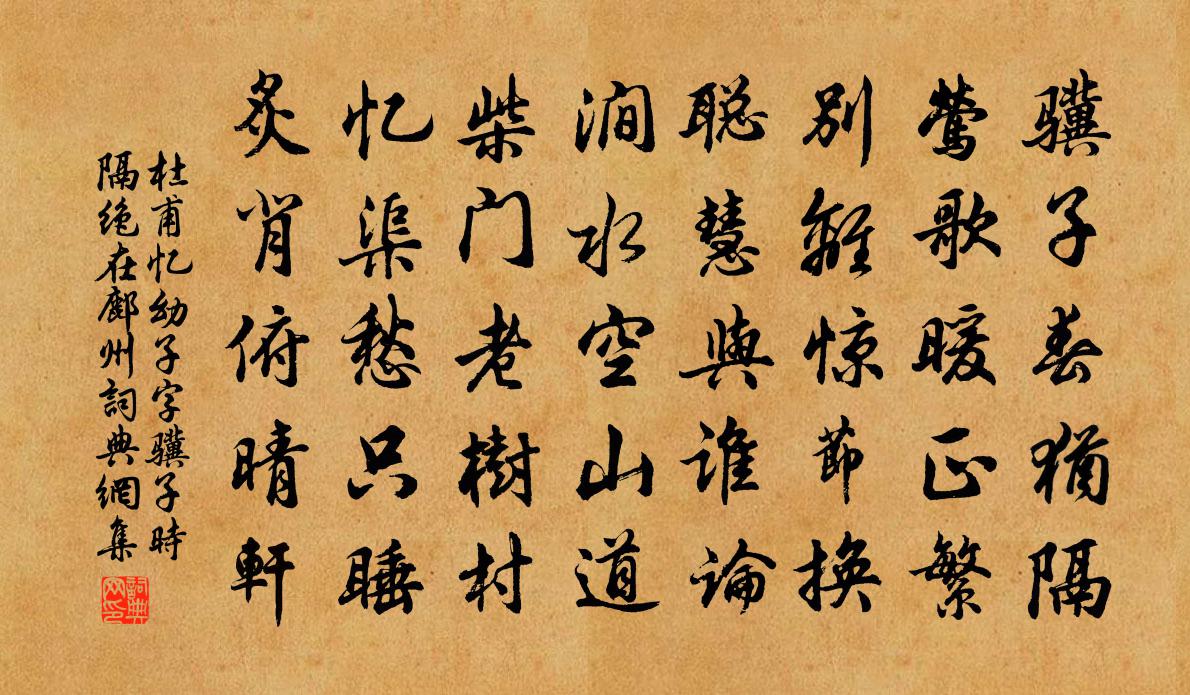 骥子春犹隔
莺歌暖正繁
别離惊節换
聪慧與谁論
涧水空山道
柴门老樹村
忆渠愁只睡
炙背俯晴軒
杜甫忆幼子字骥子時
隔绝在鄜州詞典網集
詞典
网印